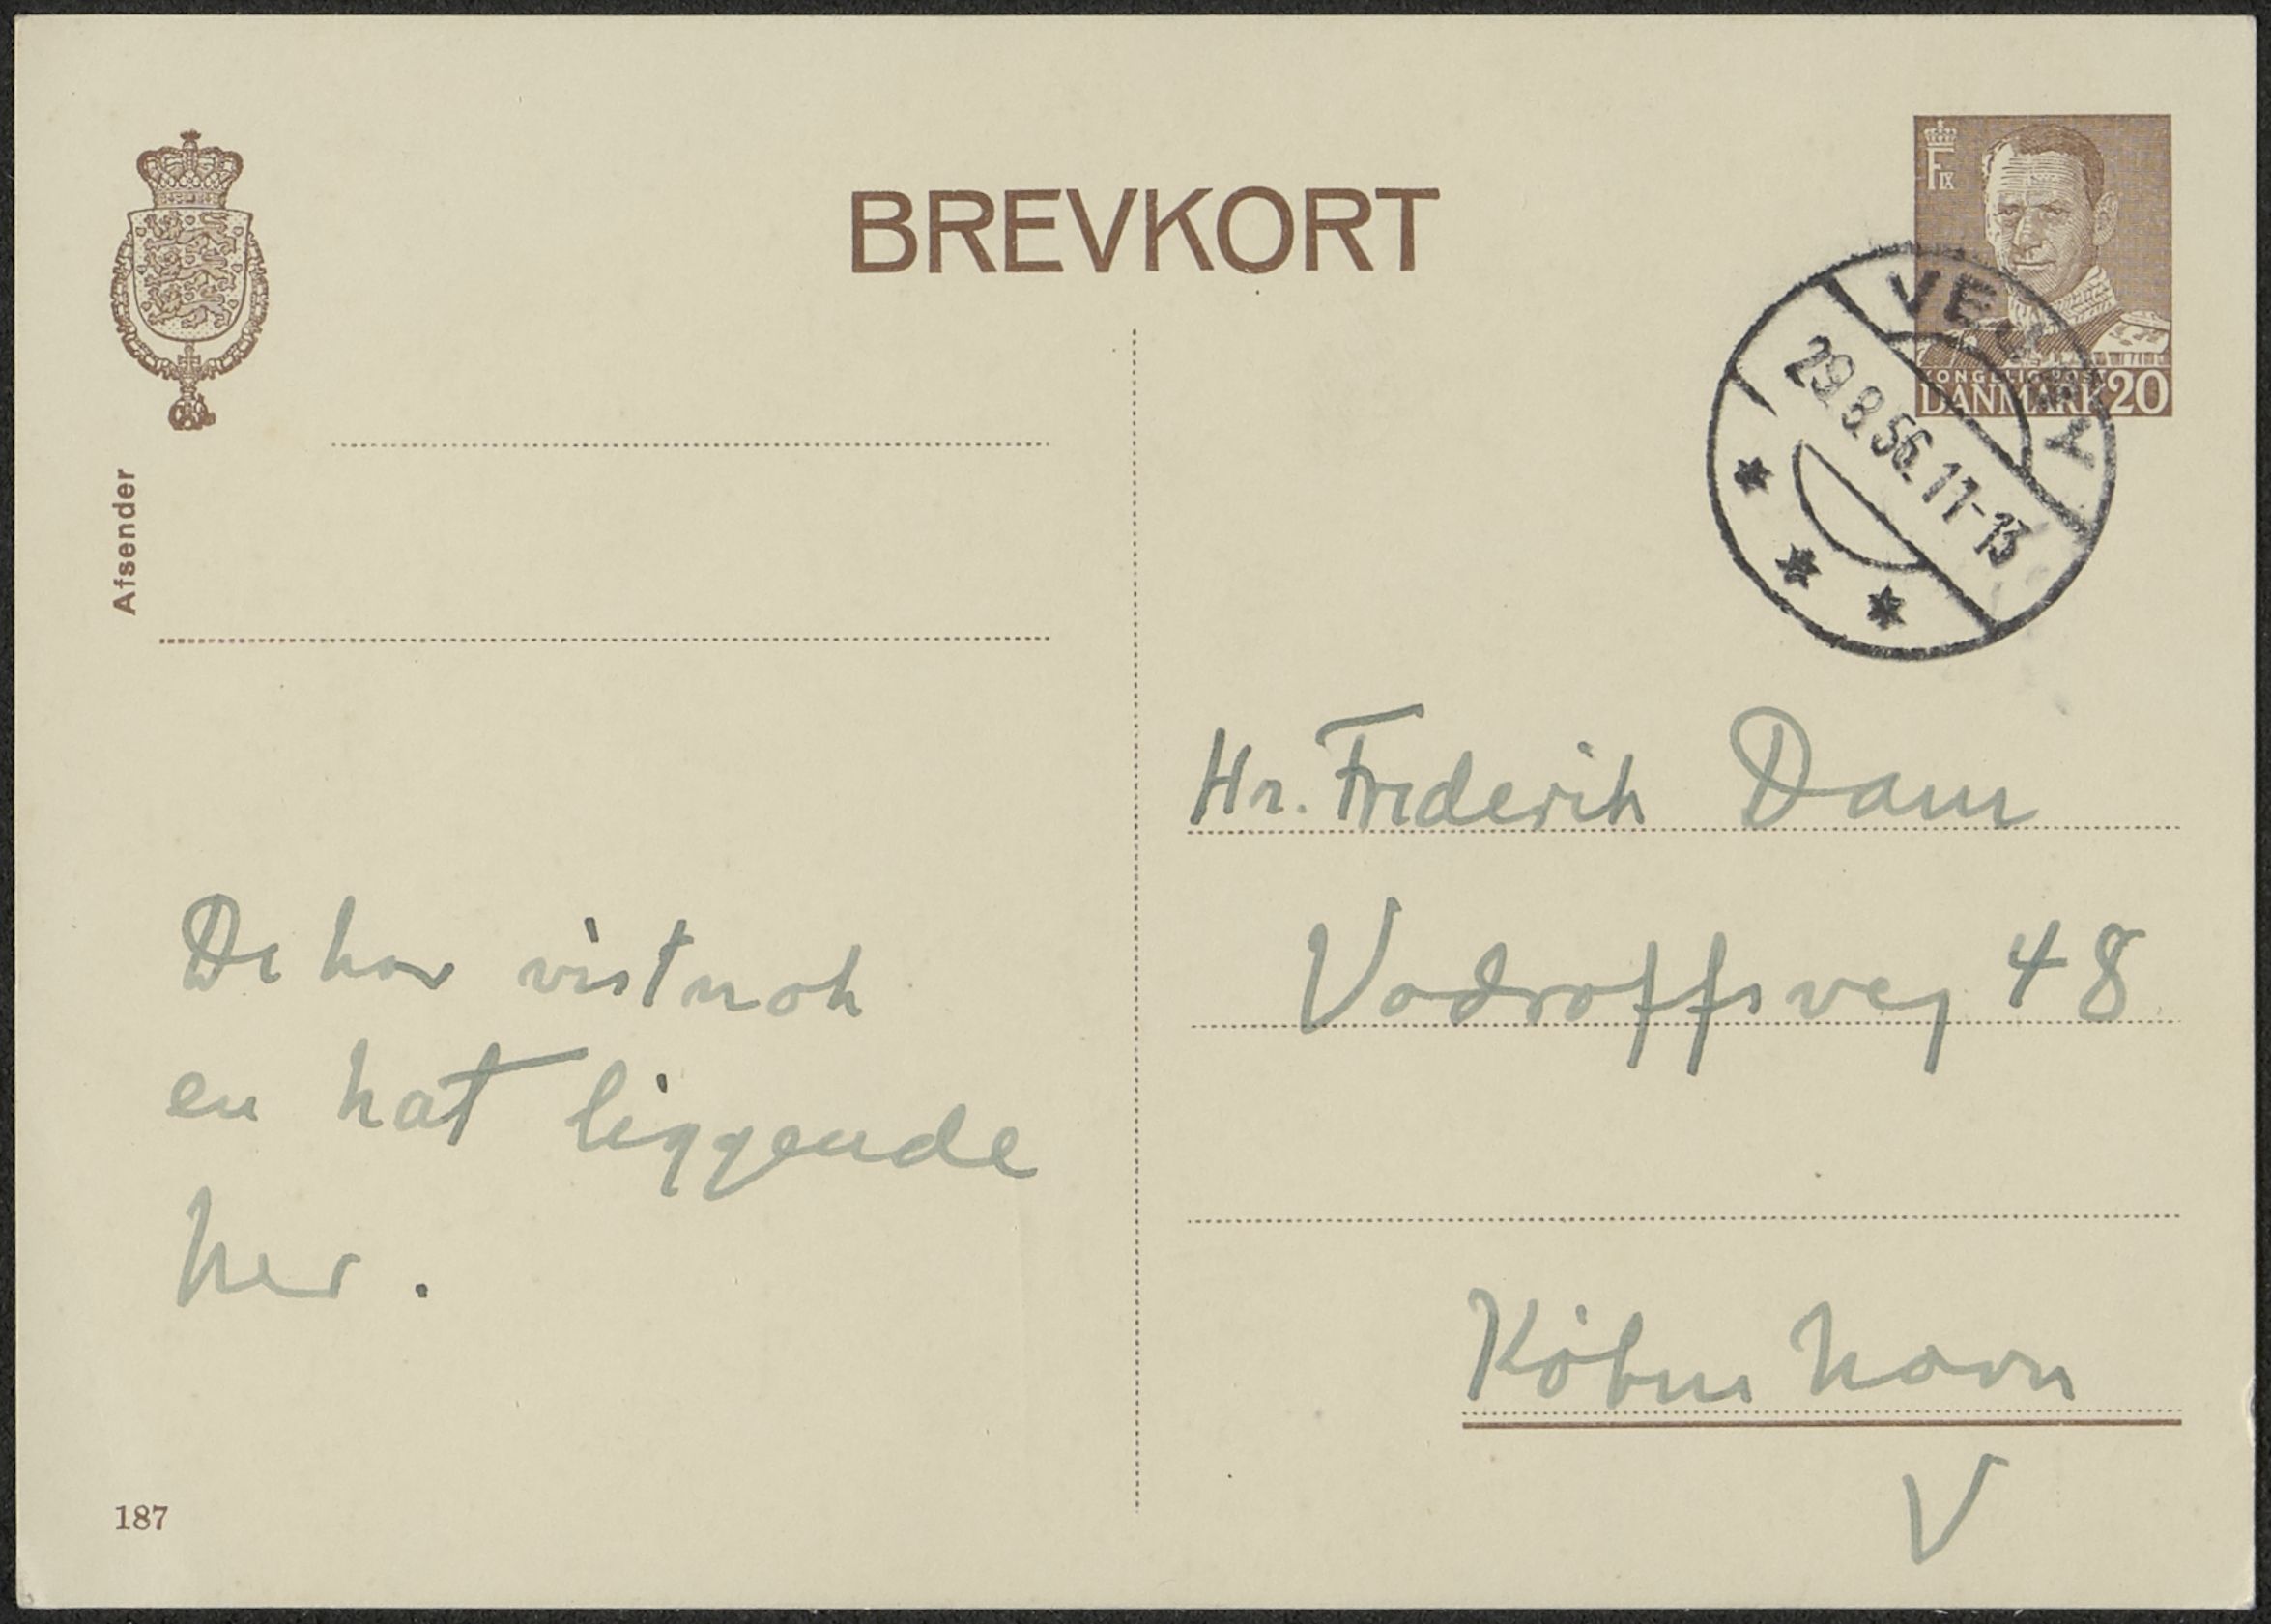 BREVKORT
FIX
KONGELIG POST
DANMARK 20
29.8.56.11-13
Afsender
De har vistnok
en hat liggende
her.
187
Hr. Frederik Dam
Vodroffsvej 48
København
V